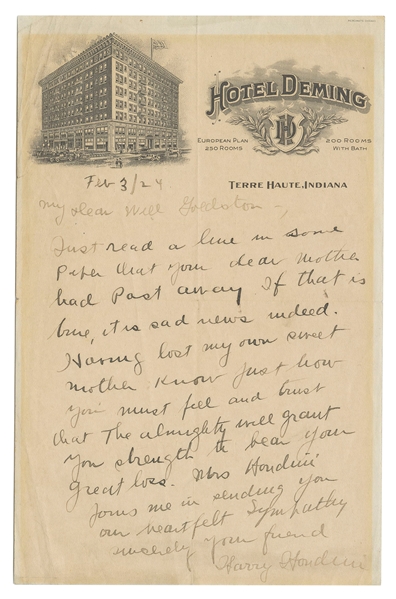 HOTEL DEMING
EUROPEAN PLAN
250 ROOMS
200 ROOMS
WITH BATH
TERRE HAUTE, INDIANA
Feb 3/24
My dear Will Goldston -,
Just read a line in some
Paper that your dear Mother
had Past away. If that is
true, it is sad news indeed.
Having lost my own sweet
mother Know Just how
you must feel and trust
that The almighty will grant
you strength to bear your
great loss. Mrs Houdini
Joins me in sending you
our heartfelt Sympathy
sincerely your friend
Harry Houdini